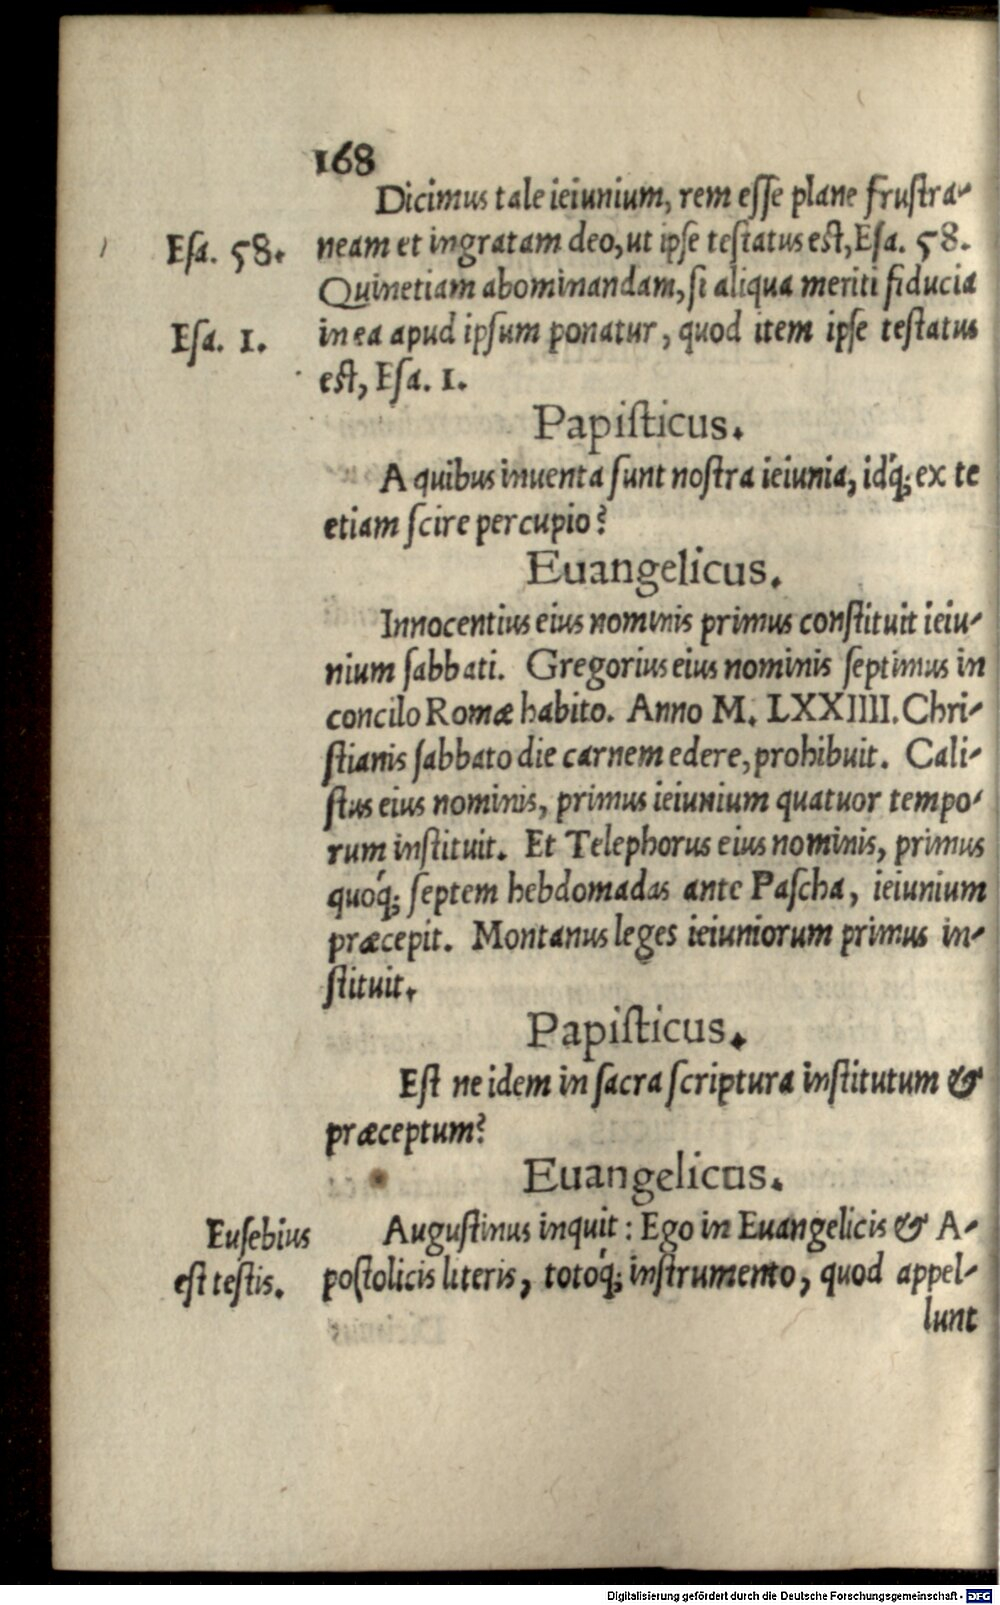 168
Dicimus tale ieiunium, rem esse plane frustra-
Esa. 58. neam et ingratam deo, ut ipse testatus est, Esa. 58.
Quinetiam abominandam, si aliqua meriti fiducia
Esa. 1. in ea apud ipsum ponatur, quod item ipse testatus
est, Esa. 1.
Papisticus.
A quibus inuenta sunt nostra ieiunia, idq́; ex te
etiam scire percupio?
Euangelicus.
Innocentius eius nominis primus constituit ieiu-
nium sabbati. Gregorius eius nominis septimus in
concilo Romæ habito. Anno M. LXXIIII. Chri-
stianis sabbato die carnem edere, prohibuit. Cali-
stus eius nominis, primus ieiunium quatuor tempo-
rum instituit. Et Telephorus eius nominis, primus
quoq́; septem hebdomadas ante Pascha, ieiunium
præcepit. Montanus leges ieiuniorum primus in-
stituit.
Papisticus.
Est ne idem in sacra scriptura institutum &
præceptum?
Euangelicus.
Eusebius Augustinus inquit: Ego in Euangelicis & A-
est testis. postolicis literis, totoq́; instrumento, quod appel-
lunt
Digitalisierung gefördert durch die Deutsche Forschungsgemeinschaft - DFG